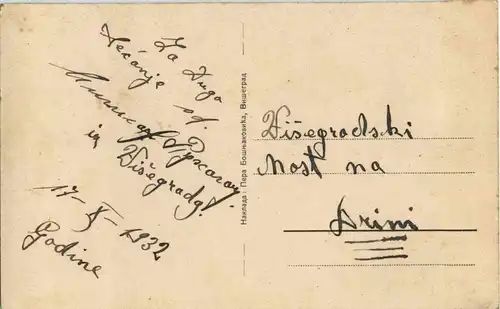 Za Dugo
sećanje od.
iz Višegrada!
17-X-1932
Godine
Наклада: Пера Бошњаковића, Вишеград
Višegradski
Most na
Drini